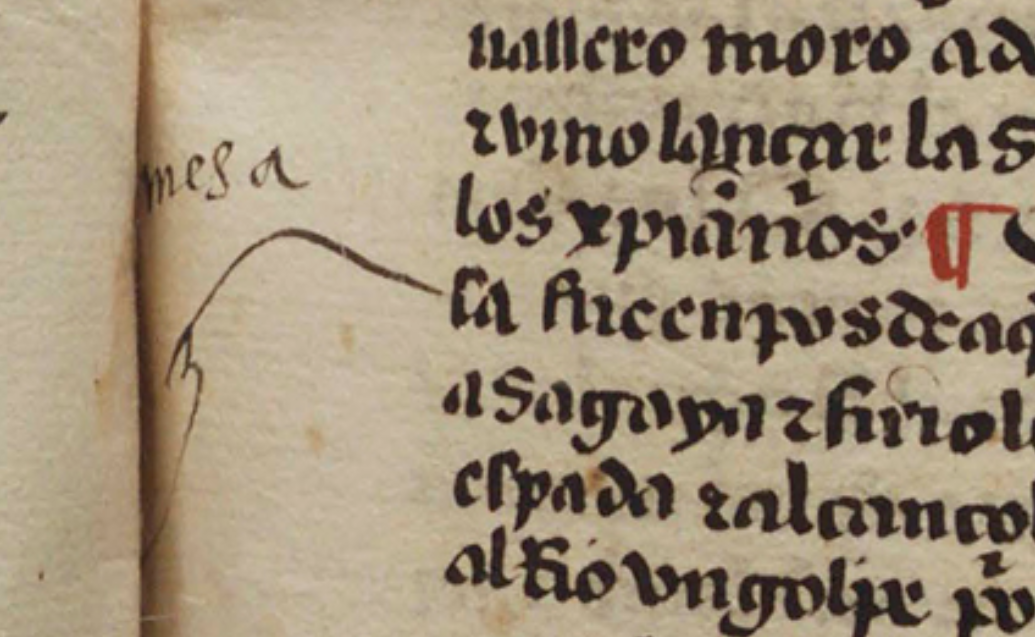 mesa
uallero moro ad
⁊ vino lançar la s
los xp̄ianos· ¶
sa fue en pos de aq
asagaya ⁊ firiol
espada ⁊ alcançol
al Rio vn golpe